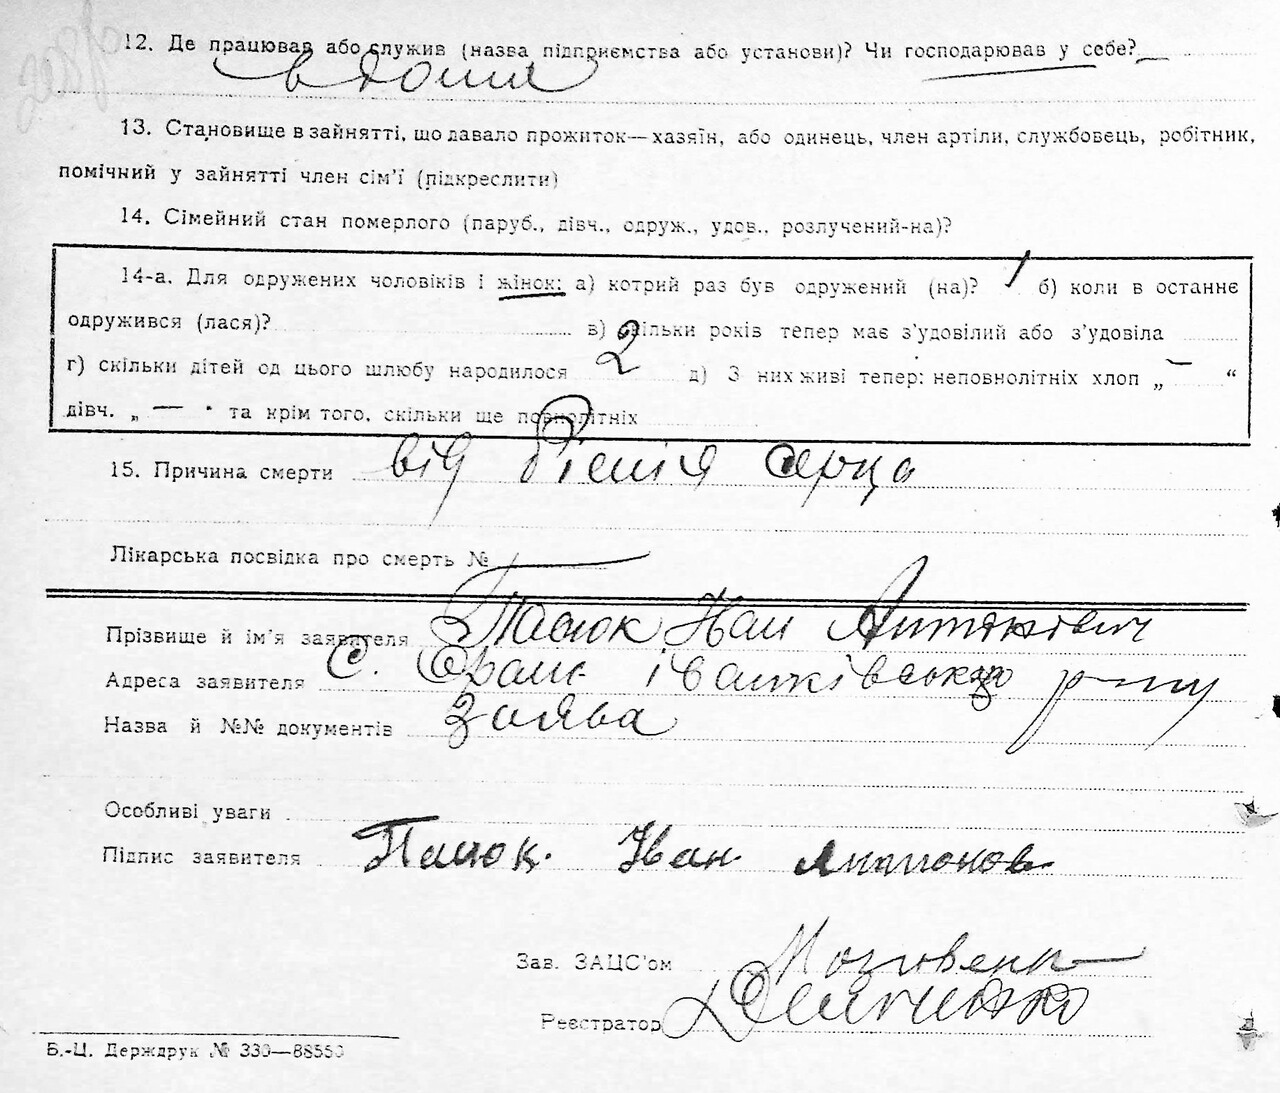 12. Де працював або служив (назва підприємства або установи)? Чи господарював у себе?
в дома
13. Становище в зайнятті, що давало прожиток—хазяїн, або одинець, член артіли, службовець, робітник,
помічний у зайнятті член сім'ї (підкреслити)
14. Сімейний стан померлого (паруб., дівч., одруж., удов., розлучений-на)?
14-а. Для одружених чоловіків і жінок: а) котрий раз був одружений (на)? 1 б) коли в останнє
одружився (лася)? в) скільки років тепер має з'удовілий або з'удовіла
г) скільки дітей од цього шлюбу народилося 2 д) З них живі тепер: неповнолітніх хлоп „ — “
дівч. „ — " та крім того, скільки ще повнолітніх
15. Причина смерти від серца
Лікарська посвідка про смерть № —
Прізвище й ім'я заявителя Пасюк Иван
Адреса заявителя с. іванківського р-ну
Назва й №№ документів заява
Особливі уваги
Підпис заявителя Пасюк. Іван Антонов
Зав. ЗАЦС'ом
Реєстратор
Б.-Ц. Держдрук № 330—88550